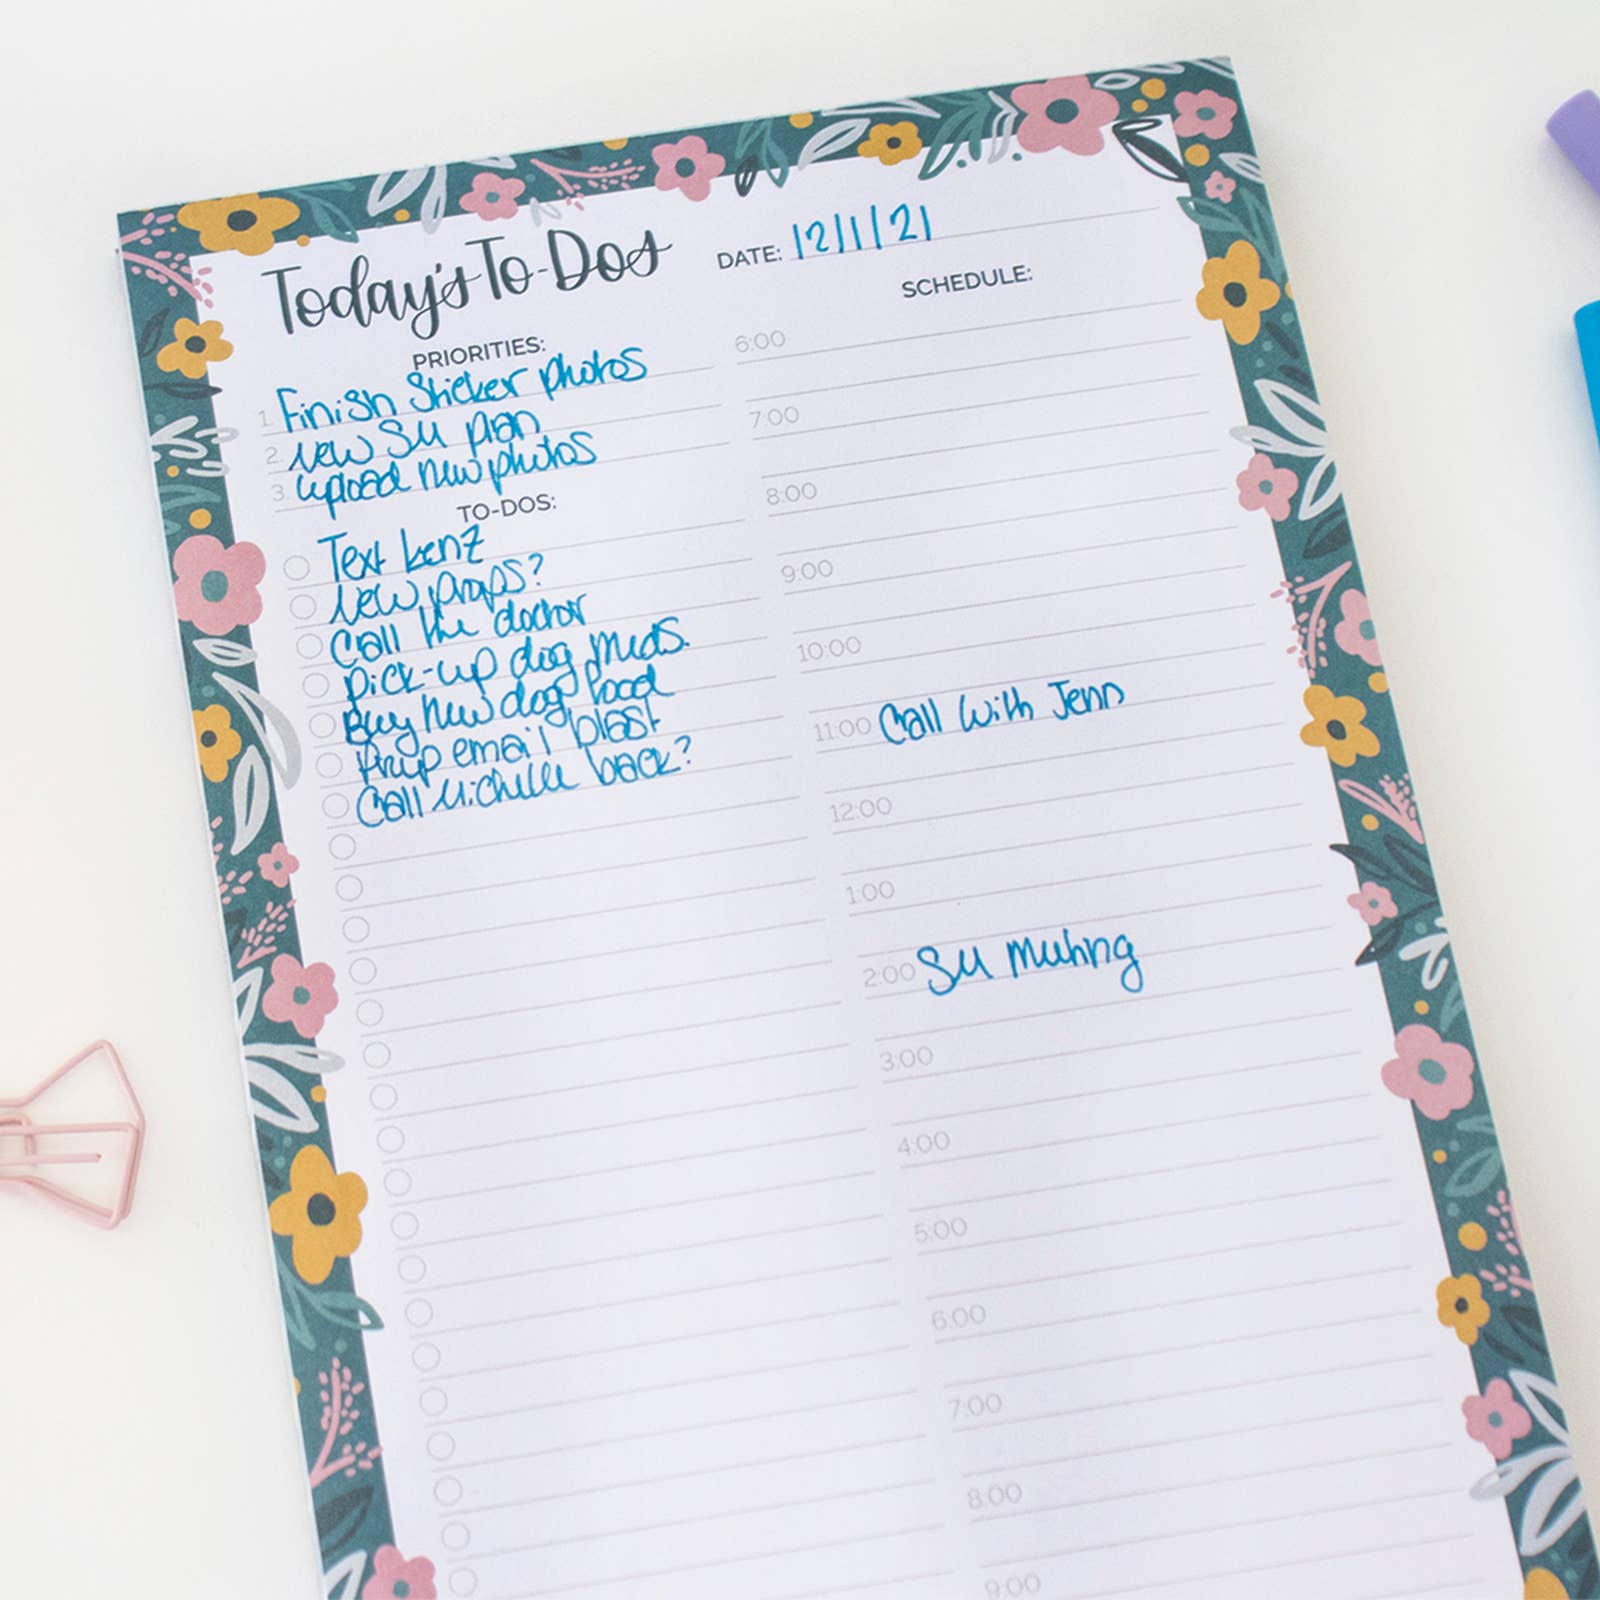 Today's To-Dos
DATE: 12/1/21
PRIORITIES:
1. Finish Sticker photos
2. New SM plan
3. Upload new photos
TO-DOS:
Text kenz
New props?
Call the doctor
Pick-up dog meds.
Buy new dog food
Prep email blast
Call Michelle back?
SCHEDULE:
6:00
7:00
8:00
9:00
10:00
11:00 Call with Jenn
12:00
1:00
2:00 SM Meeting
3:00
4:00
5:00
6:00
7:00
8:00
9:00